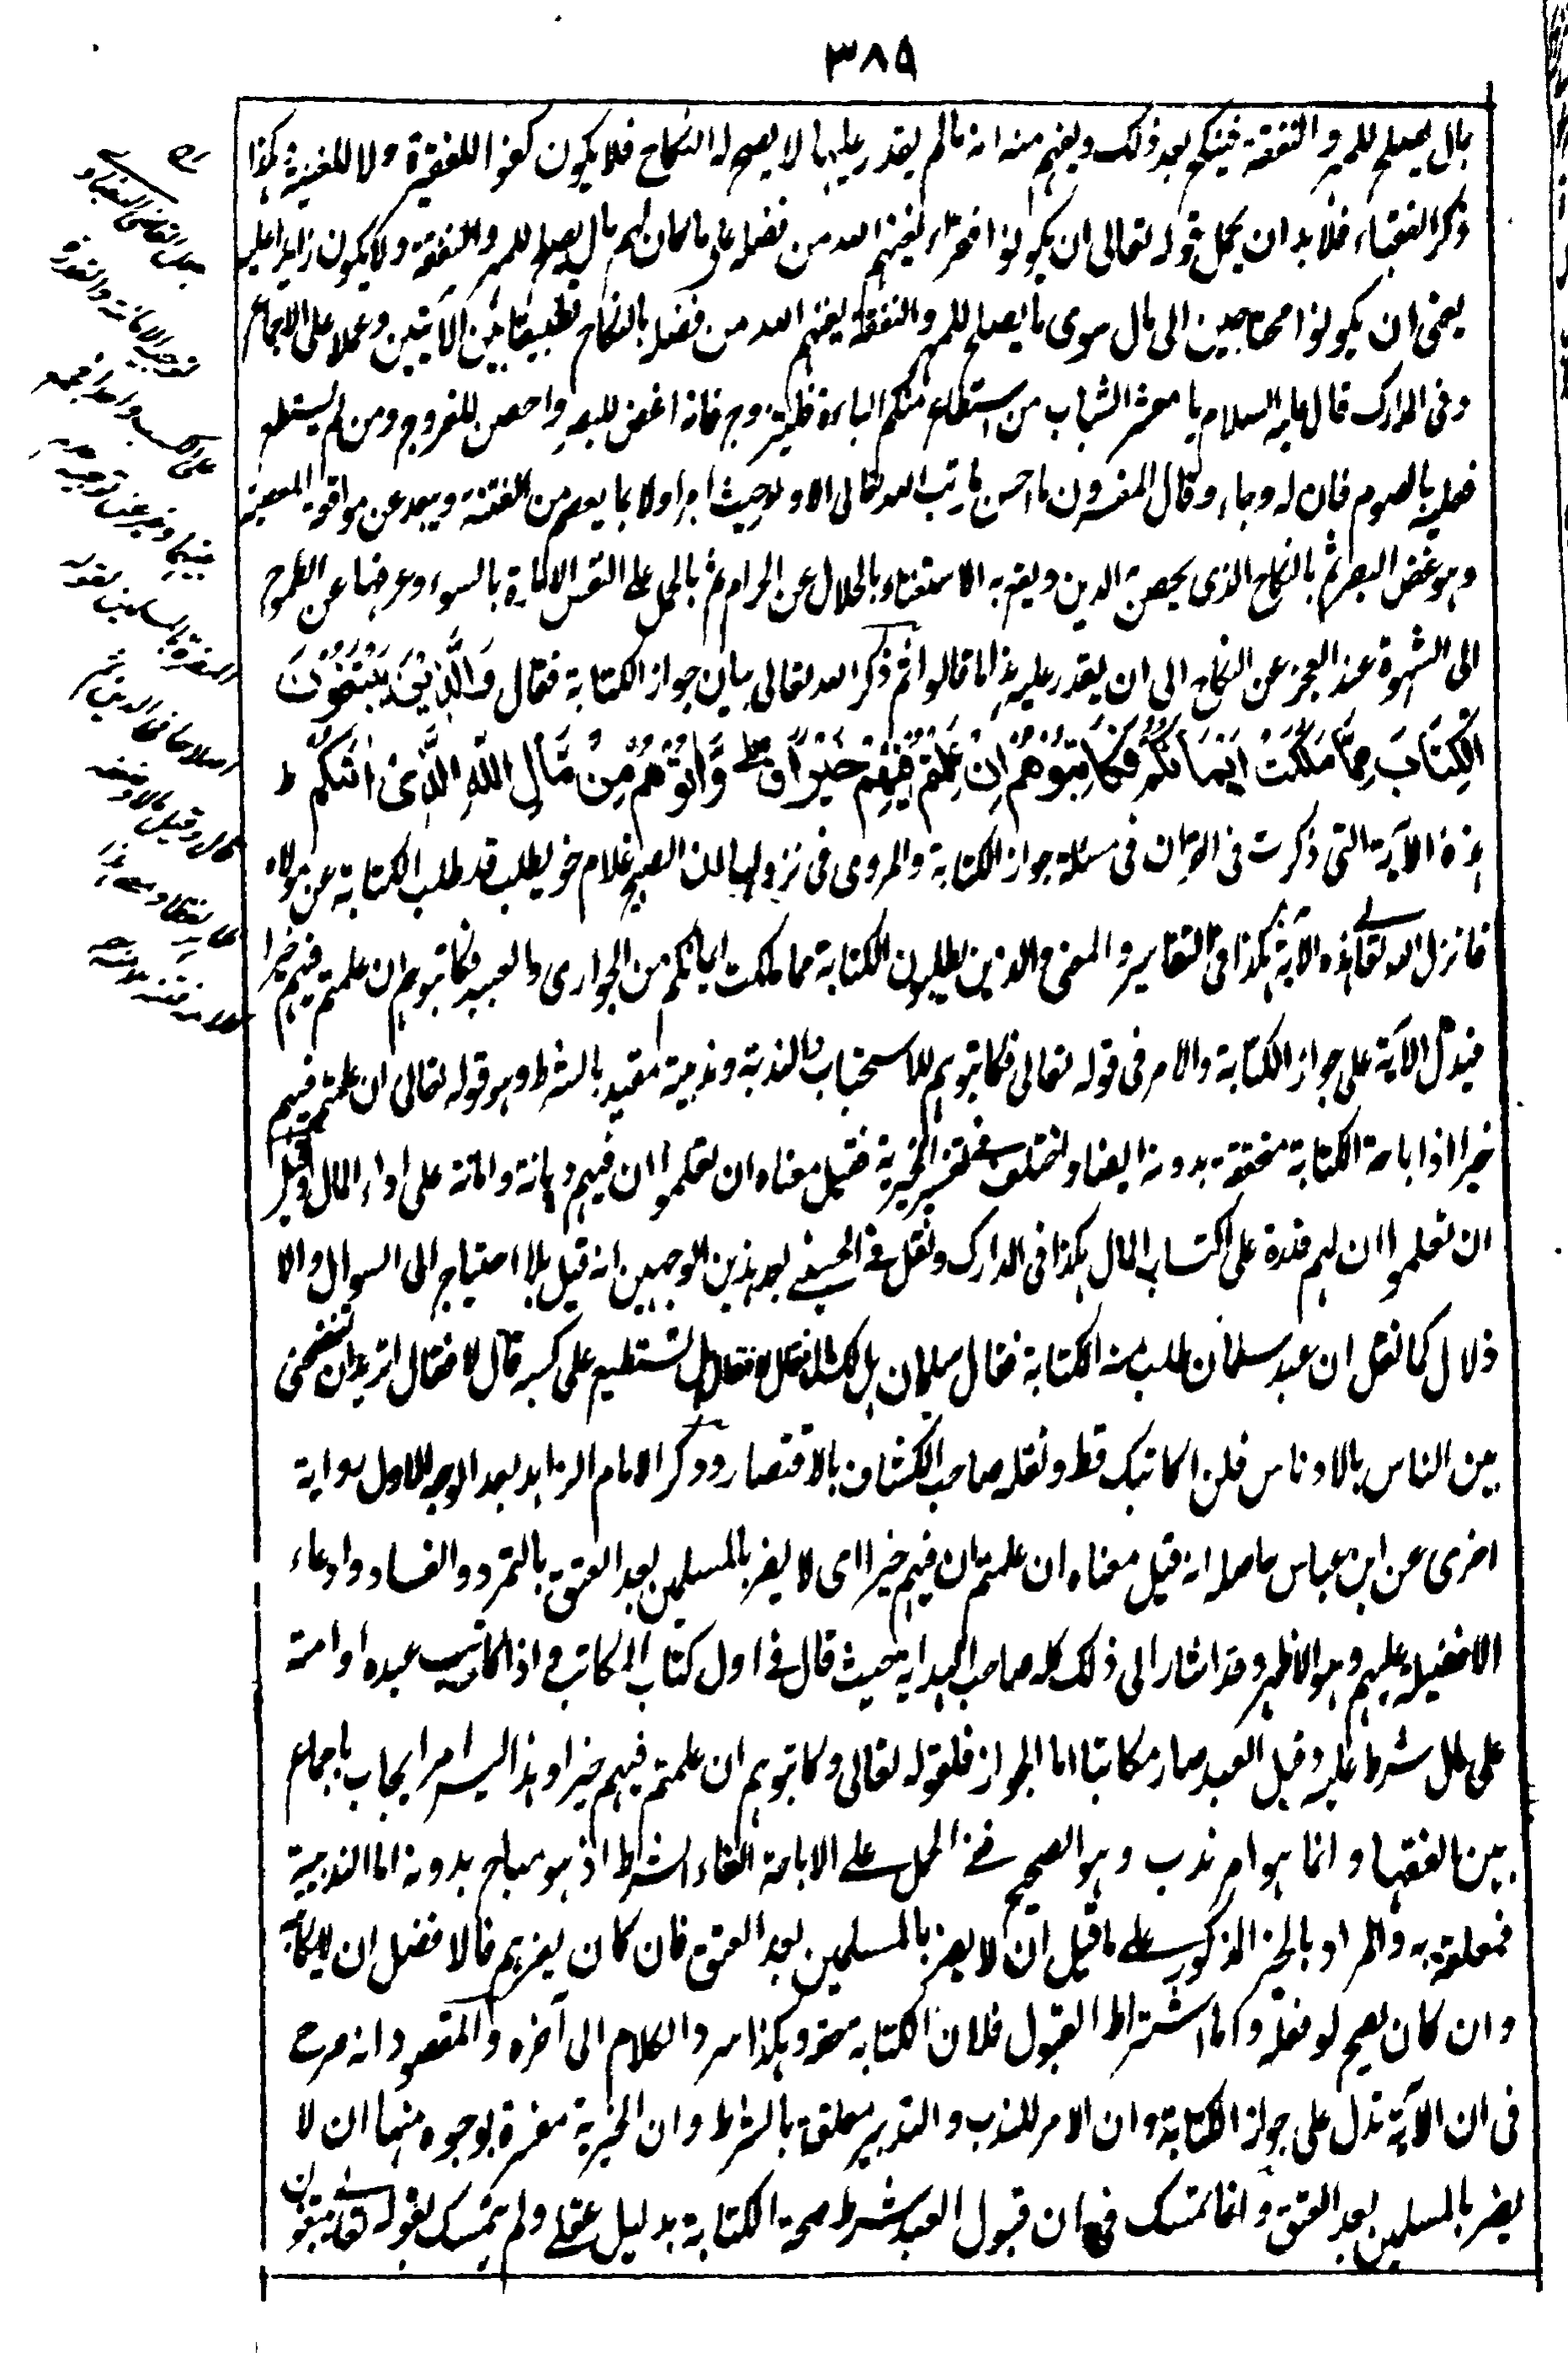 ٣٨٥
بال يصلح للمهر والنفقة فينكح بعد ذلك ويفهم منه انه ما لم يقدر عليها لا يصح له النكاح فلا يكون كفوا للفقيرة ولا للغنية هكذا
ذكر الفقهاء فلا بد ان يحمل قوله تعالى ان يكونوا فقراء يغنهم الله من فضله على ما كان لهم مال يصلح للمهر والنفقة ولا يكون زايدا عليه
يعنى ان يكونوا محتاجين الى مال سوى ما يصلح للمهر والنفقة يغنهم الله من فضله بالنكاح تطبيقا بين الآيتين وعملا على الاجماع
وفى المدارك قال عليه السلام يا معشر الشباب من استطاع منكم الباءة فليتزوج فانه اغض للبصر واحصن للفروج ومن لم يستطع
فعليه بالصوم فان له وجاء وقال المفسرون ما احسن ما رتب الله تعالى الاوامر حيث امر اولا بما يعصم من الفتنة ويبعد عن مواقعة المعصية
وهو غض البصر ثم بالنكاح الذى يحصن به الدين ويقع به الاستغناء بالحلال عن الحرام ثم بالحمل على النفس الامارة بالسوء وعزفها عن الطموح
الى الشهوة عند العجز عن النكاح الى ان يقدر عليه هذا ما قالوا ثم ذكر الله تعالى بيان جواز الكتابة فقال وَالَّذِيْنَ يَبْتَغُوْنَ
الْكِتَابَ مِمَّا مَلَكَتْ اَيْمَانُكُمْ فَكَاتِبُوْهُمْ اِنْ عَلِمْتُمْ فِيْهِمْ خَيْرًا ق وَّاٰتُوْهُمْ مِنْ مَّالِ اللّٰهِ الَّذِىْ اٰتٰكُمْ ط
هذه الآية التى ذكرت فى القرآن فى مسئلة جواز الكتابة والمروى فى نزولها ان الصبيح غلام حويطب قد طلب الكتابة عن مولاه
فانزل الله تعالى هذه الآية هكذا فى التفاسير والمعنى والذين يطلبون الكتابة مما ملكت ايمانكم من الجوارى والعبيد فكاتبوهم ان علمتم فيهم خيرا
فيدل الآية على جواز الكتابة والامر فى قوله تعالى فكاتبوهم للاستحباب والندبة وندبية مقيد بالشرط وهو قوله تعالى ان علمتم فيهم
خيرا اذ اباحة الكتابة متحققة بدونه ايضا واختلف فى تفسير الخيرية فقيل معناه ان تعلموا ان فيهم ديانة وامانة على اداء المال وقيل
ان تعلموا ان لهم قدرة على اكتساب المال هكذا فى المدارك ونقل فى الحسينى بعد هذين الوجهين انه قيل بلا احتياج الى السوال والا
فلا لما نقل ان عبد سلمان طلب منه الكتابة فقال سلمان هل لك مال فقال لا فقال هل تستطيع على كسبه قال لا فقال اتريد ان تفضحنى
بين الناس بالاوناس فلن اكاتبك قط ونقله صاحب الكشاف بالاقتصار وذكر الامام الزاهد بعد الوجه الاول رواية
اخرى عن ابن عباس حاصله انه قيل معناه ان علمتم ان فيهم خيرا اى لا يضر بالمسلمين بعد العتق بالتمرد والفساد وادعاء
الافضيلة عليهم وهو الاظهر وقد اشار الى ذلك كله صاحب الهداية حيث قال فى اول كتاب المكاتب واذا كاتب عبده او امته
على مال شرط عليه وقبل العبد صار مكاتبا اما الجواز فلقوله تعالى وكاتبوهم ان علمتم فيهم خيرا وهذا ليس امر ايجاب باجماع
بين الفقهاء وانما هو امر ندب وهو الصحيح ففى الحمل على الاباحة الغاء الشرط اذ هو مباح بدونه اما الندبية
فمعلقة به والمراد بالخير المذكور على ما قيل ان لا يضر بالمسلمين بعد العتق فان كان يضر بهم فالافضل ان لا يكاتبه
وان كان يصح لو فعله واما اشتراط القبول فلان الكتابة عقد وهكذا سرد الكلام الى آخره والمقصود انه صرح
فى ان الآية تدل على جواز الكتابة وان الامر للندب والتدبير معلقة بالشرط وان الخيرية مفسرة بوجوه منها ان لا
يضر بالمسلمين بعد العتق وانما تمسك فى ان قبول العبد شرط صحة الكتابة بدليل عقلى ولم يتمسك بقوله تعالى يبتغون